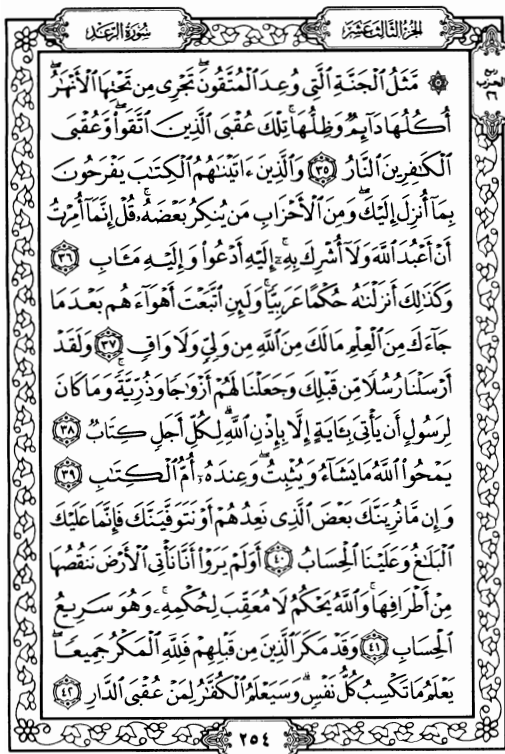 الجزء الثالث عشر
سورة الرعد
ربع
الحزب
٢٦
۞ مَّثَلُ الْجَنَّةِ الَّتِي وُعِدَ الْمُتَّقُونَ ۖ تَجْرِي مِن تَحْتِهَا الْأَنْهَٰرُ ۖ
أُكُلُهَا دَآئِمٌ وَظِلُّهَا ۚ تِلْكَ عُقْبَى الَّذِينَ اتَّقَوا ۖ وَّعُقْبَى
الْكَٰفِرِينَ النَّارُ ٣٥ وَالَّذِينَ ءَاتَيْنَٰهُمُ الْكِتَٰبَ يَفْرَحُونَ
بِمَآ أُنزِلَ إِلَيْكَ ۖ وَمِنَ الْأَحْزَابِ مَن يُنكِرُ بَعْضَهُۥ ۚ قُلْ إِنَّمَآ أُمِرْتُ
أَنْ أَعْبُدَ اللَّهَ وَلَآ أُشْرِكَ بِهِۦٓ ۚ إِلَيْهِ أَدْعُوا وَإِلَيْهِ مَـَٔابِ ٣٦
وَكَذَٰلِكَ أَنزَلْنَٰهُ حُكْمًا عَرَبِيًّا ۚ وَلَئِنِ اتَّبَعْتَ أَهْوَآءَهُم بَعْدَمَا
جَآءَكَ مِنَ الْعِلْمِ مَا لَكَ مِنَ اللَّهِ مِن وَلِيٍّ وَلَا وَاقٍ ٣٧ وَلَقَدْ
أَرْسَلْنَا رُسُلًا مِّن قَبْلِكَ وَجَعَلْنَا لَهُمْ أَزْوَٰجًا وَذُرِّيَّةً ۚ وَمَا كَانَ
لِرَسُولٍ أَن يَأْتِيَ بِـَٔايَةٍ إِلَّا بِإِذْنِ اللَّهِ ۗ لِكُلِّ أَجَلٍ كِتَابٌ ٣٨
يَمْحُوا اللَّهُ مَا يَشَآءُ وَيُثْبِتُ ۖ وَعِندَهُۥٓ أُمُّ الْكِتَٰبِ ٣٩
وَإِن مَّا نُرِيَنَّكَ بَعْضَ الَّذِي نَعِدُهُمْ أَوْ نَتَوَفَّيَنَّكَ فَإِنَّمَا عَلَيْكَ
الْبَلَٰغُ وَعَلَيْنَا الْحِسَابُ ٤٠ أَوَلَمْ يَرَوْا أَنَّا نَأْتِي الْأَرْضَ نَنقُصُهَا
مِنْ أَطْرَافِهَا ۚ وَاللَّهُ يَحْكُمُ لَا مُعَقِّبَ لِحُكْمِهِۦ ۚ وَهُوَ سَرِيعُ
الْحِسَابِ ٤١ وَقَدْ مَكَرَ الَّذِينَ مِن قَبْلِهِمْ فَلِلَّهِ الْمَكْرُ جَمِيعًا ۖ
يَعْلَمُ مَا تَكْسِبُ كُلُّ نَفْسٍ ۗ وَسَيَعْلَمُ الْكُفَّٰرُ لِمَنْ عُقْبَى الدَّارِ ٤٢
٢٥٤